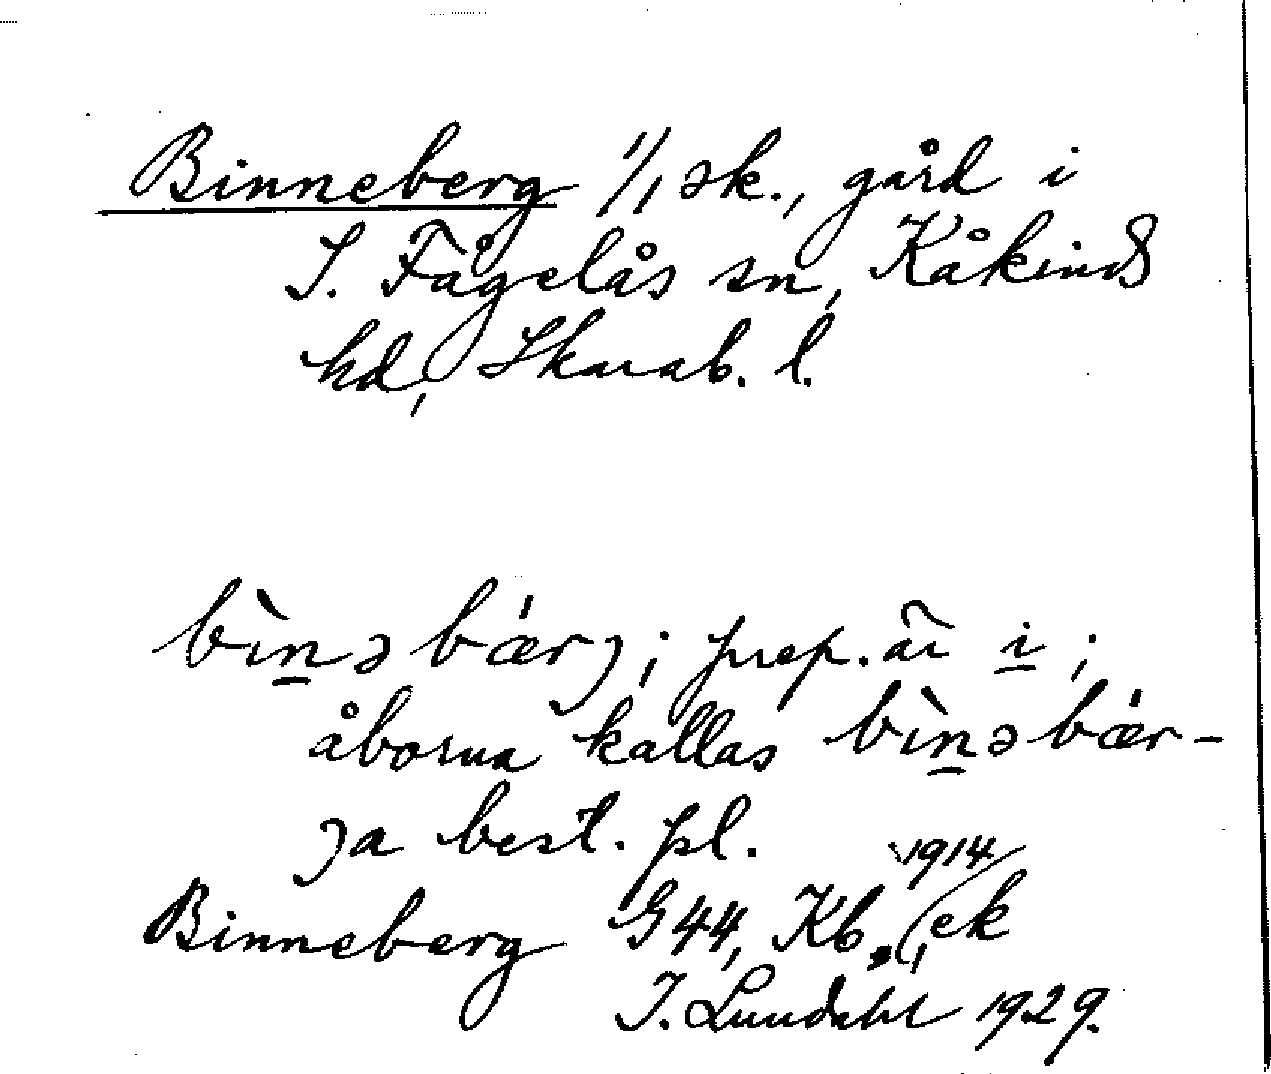 Binneberg 1/1 sk., gård i
S. Fågelås sn, Kåkinds
hd, Skarab. l.
bìn̲ə bǽrȷ; prep. är i̲;
åborna kallas bìn̲ə bǽr-
ȷa best. pl.
Binneberg G44, Kb. 1914, ek
I. Lundahl 1929.